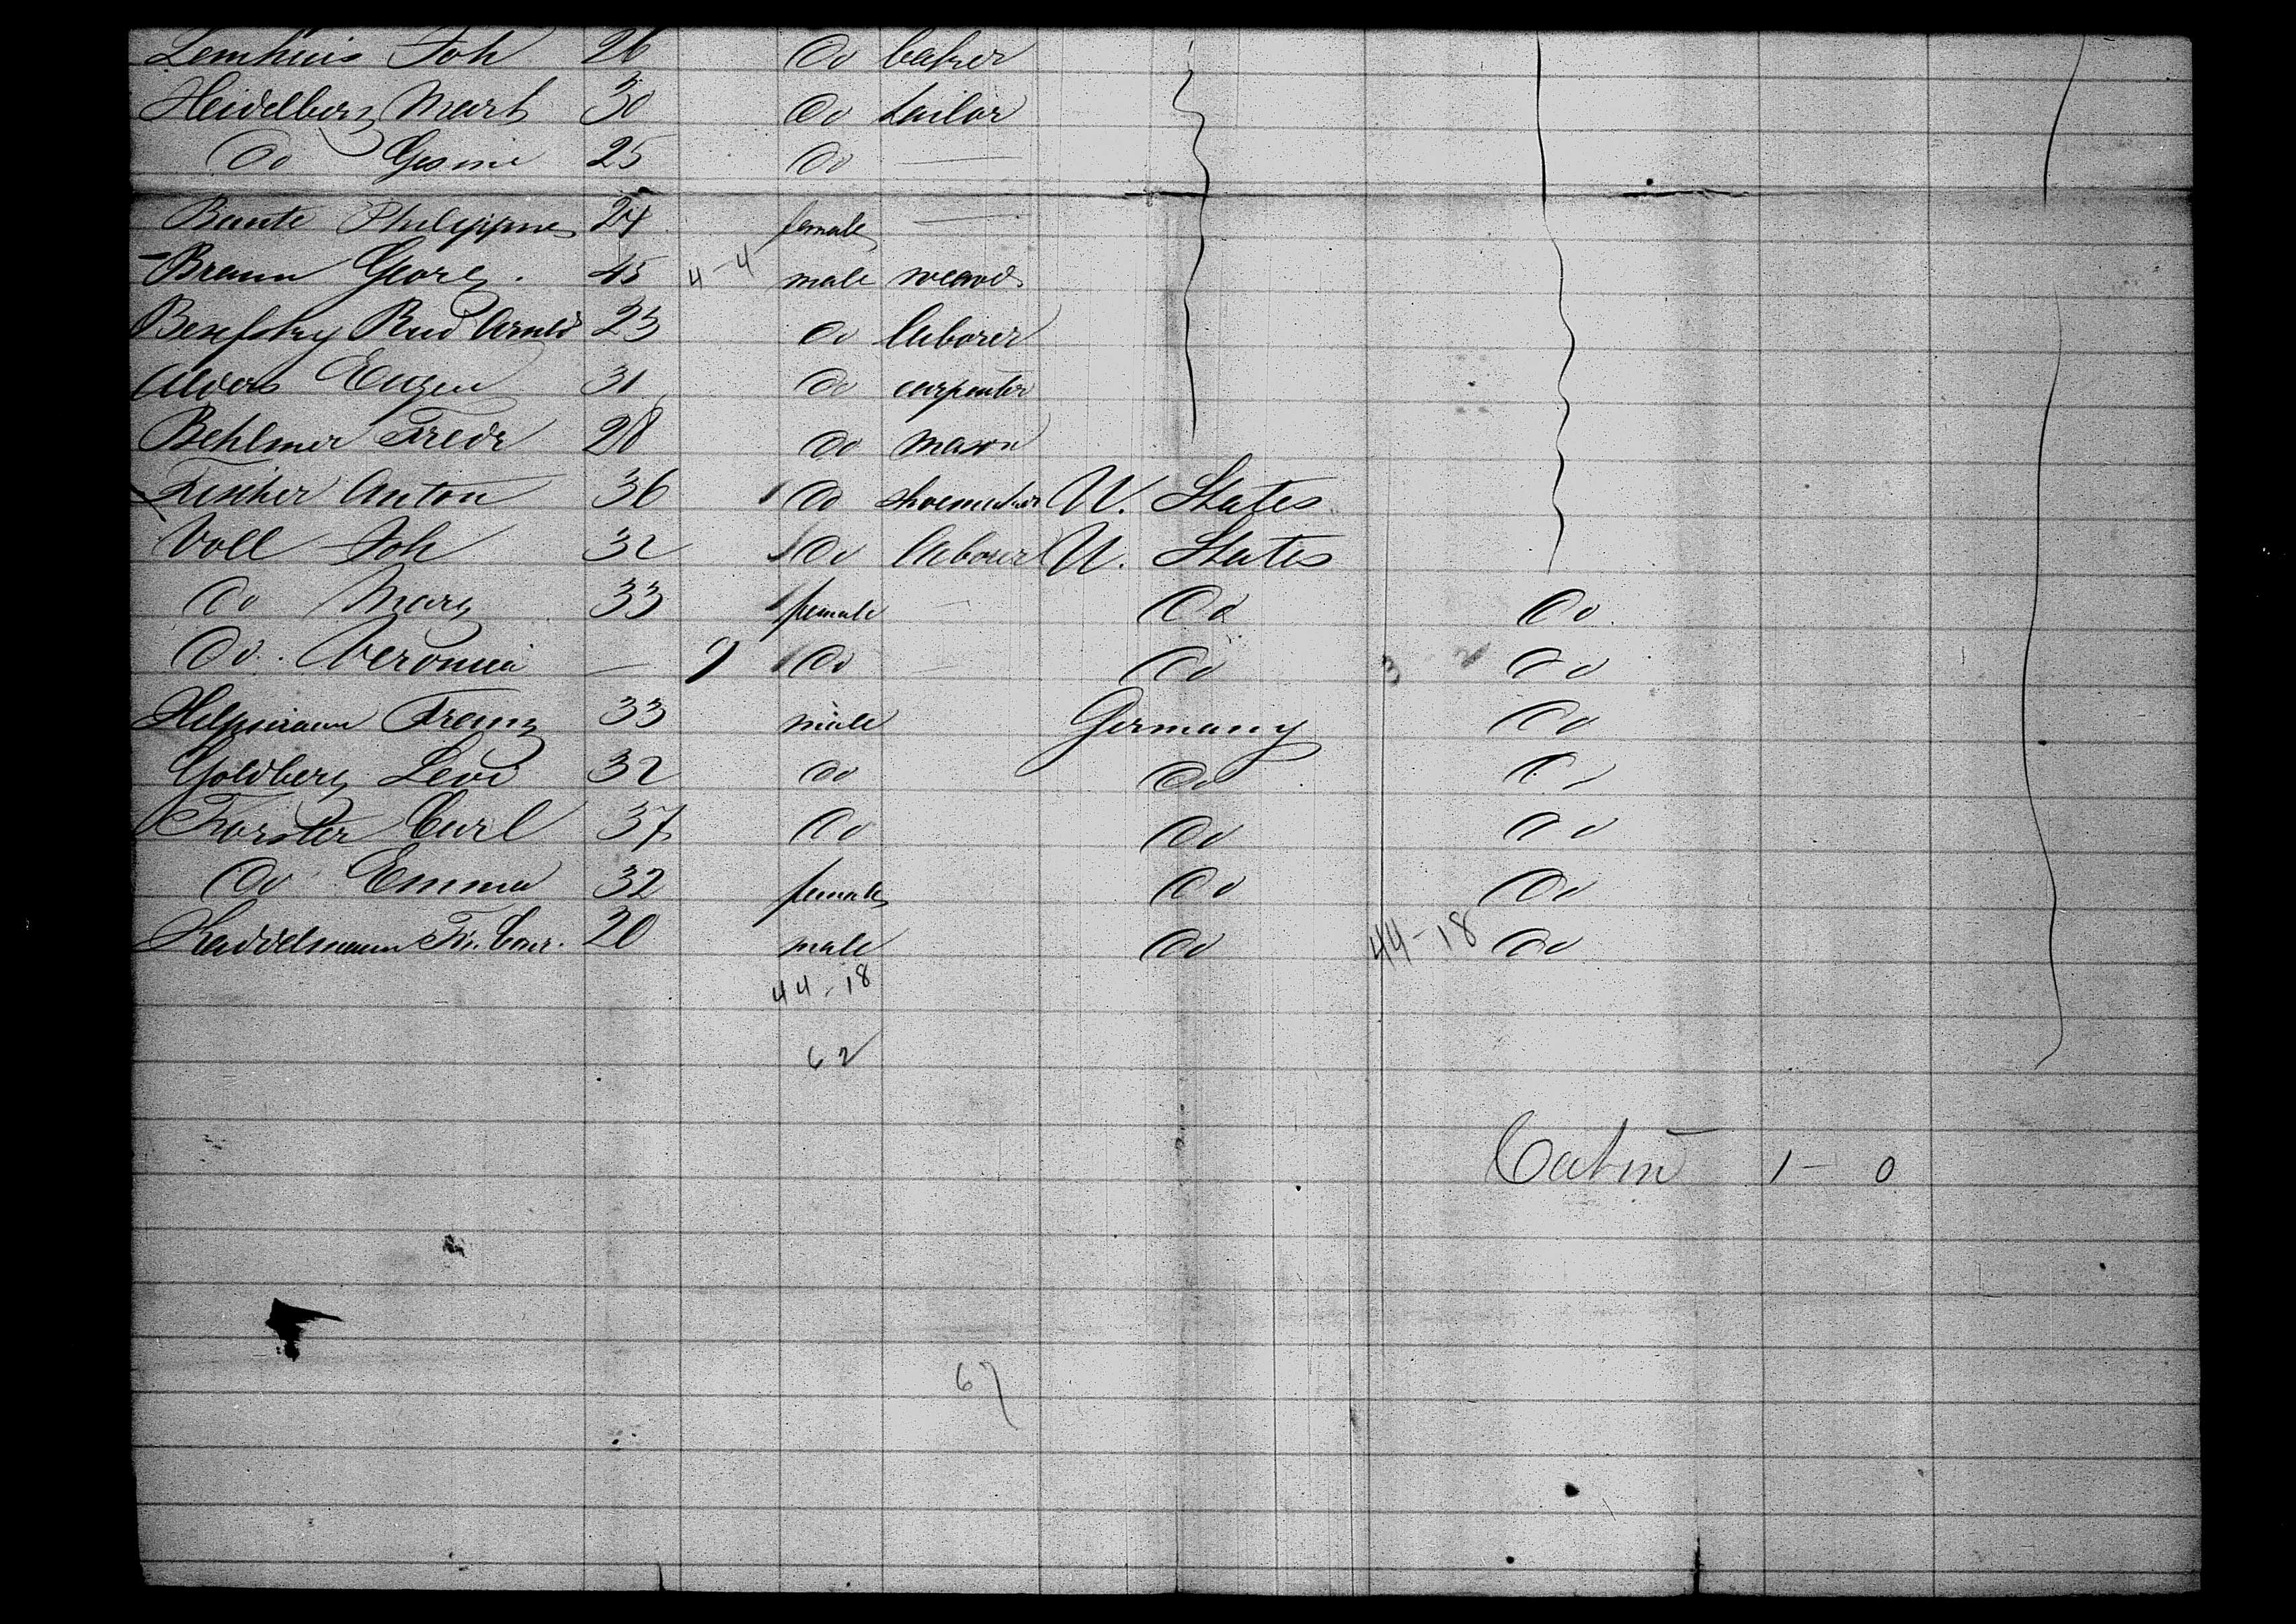 Lemhuis Joh 26 do baker
Heidelberg Mart 30 do tailor
do Gesine 25 do —
Bante Philippine 24 female —
Braun Georg. 45 4-4 male
Rud Arnold 23 do laborer
Alvers Eugen 31 do carpenter
Behlmer Fredr 28 do mason
Fischer Anton 36 do shoemaker U. States
Voll Joh 32 do laborer U. States
do Marg 33 female — do do
do. Veronica — 9 do — do 3 2 do
Helpmann Franz 33 male Germany do
Goldberg Levi 32 do do do
Forster Carl 37 do do do
do Emma 32 female do do
Fr. Conr. 20 male do 44-18 do
44-18
62
Cabin 1 - 0
67